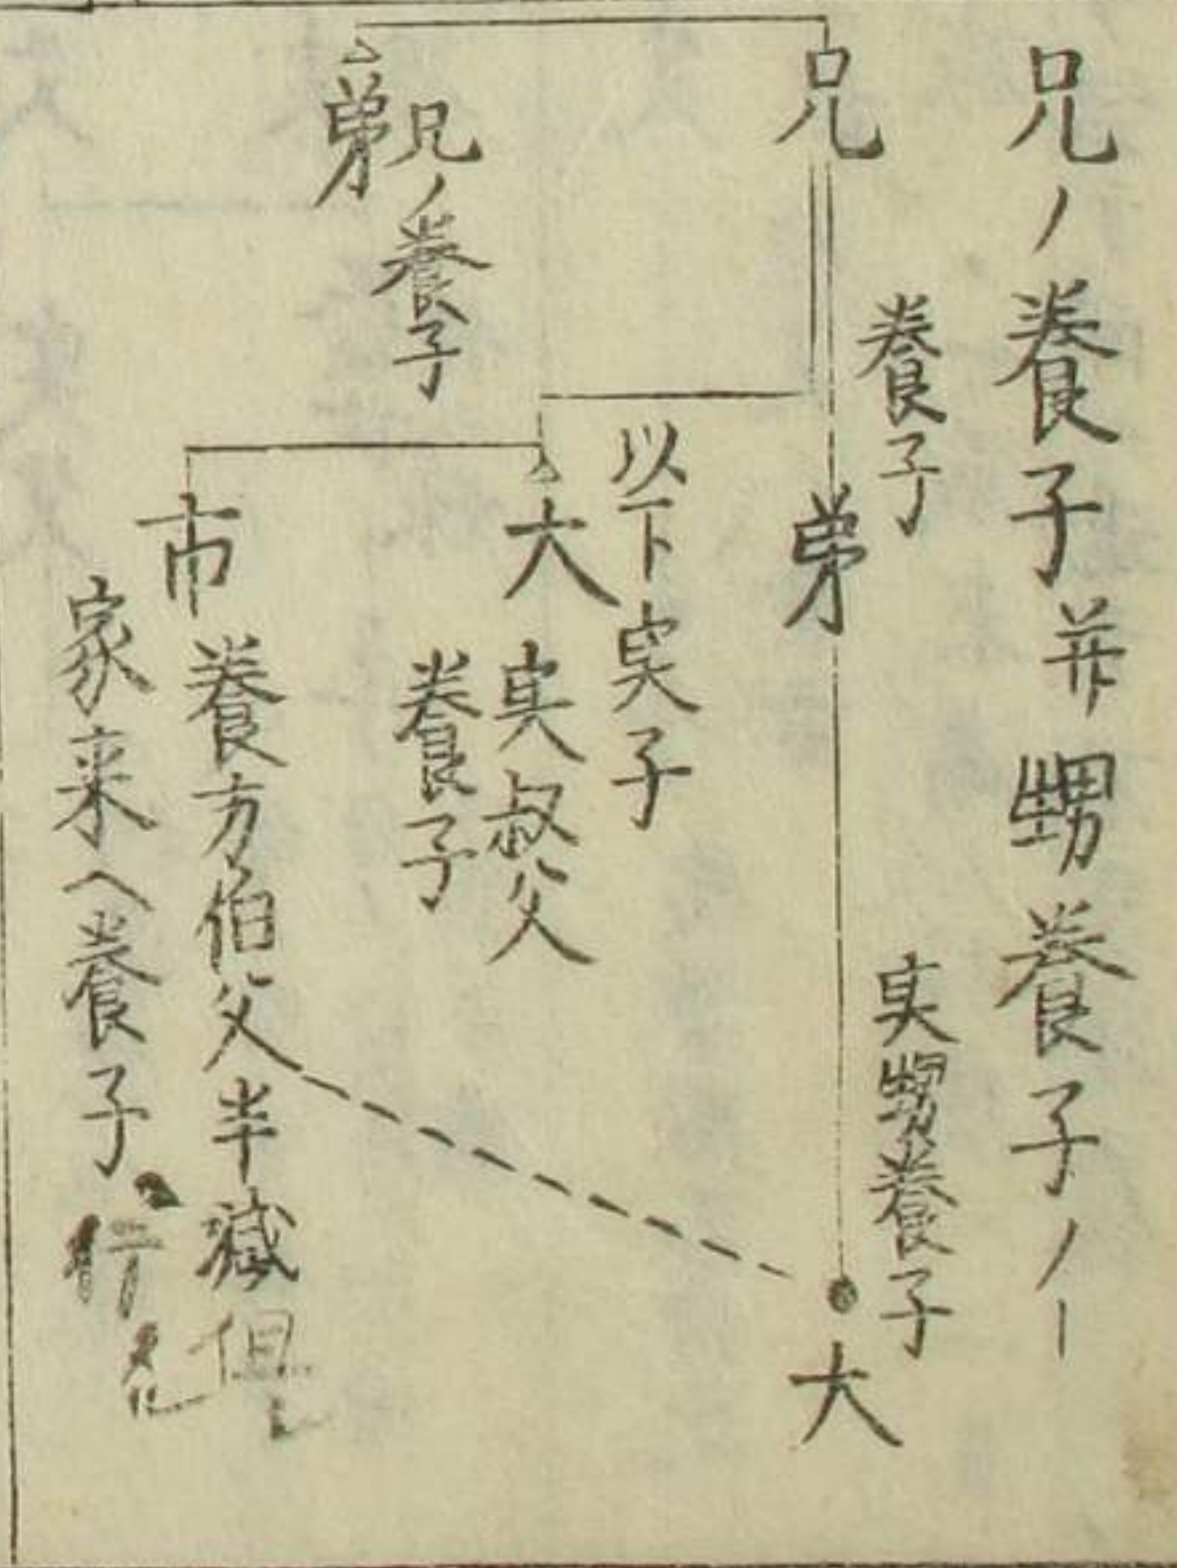 兄ノ養子并甥養子ノ一
兄
養子
弟
実甥養子
大
以下実子
大
実叔父
養子
弟
兄ノ養子
市
養方伯父半減但し
家来ヘ養子ニ